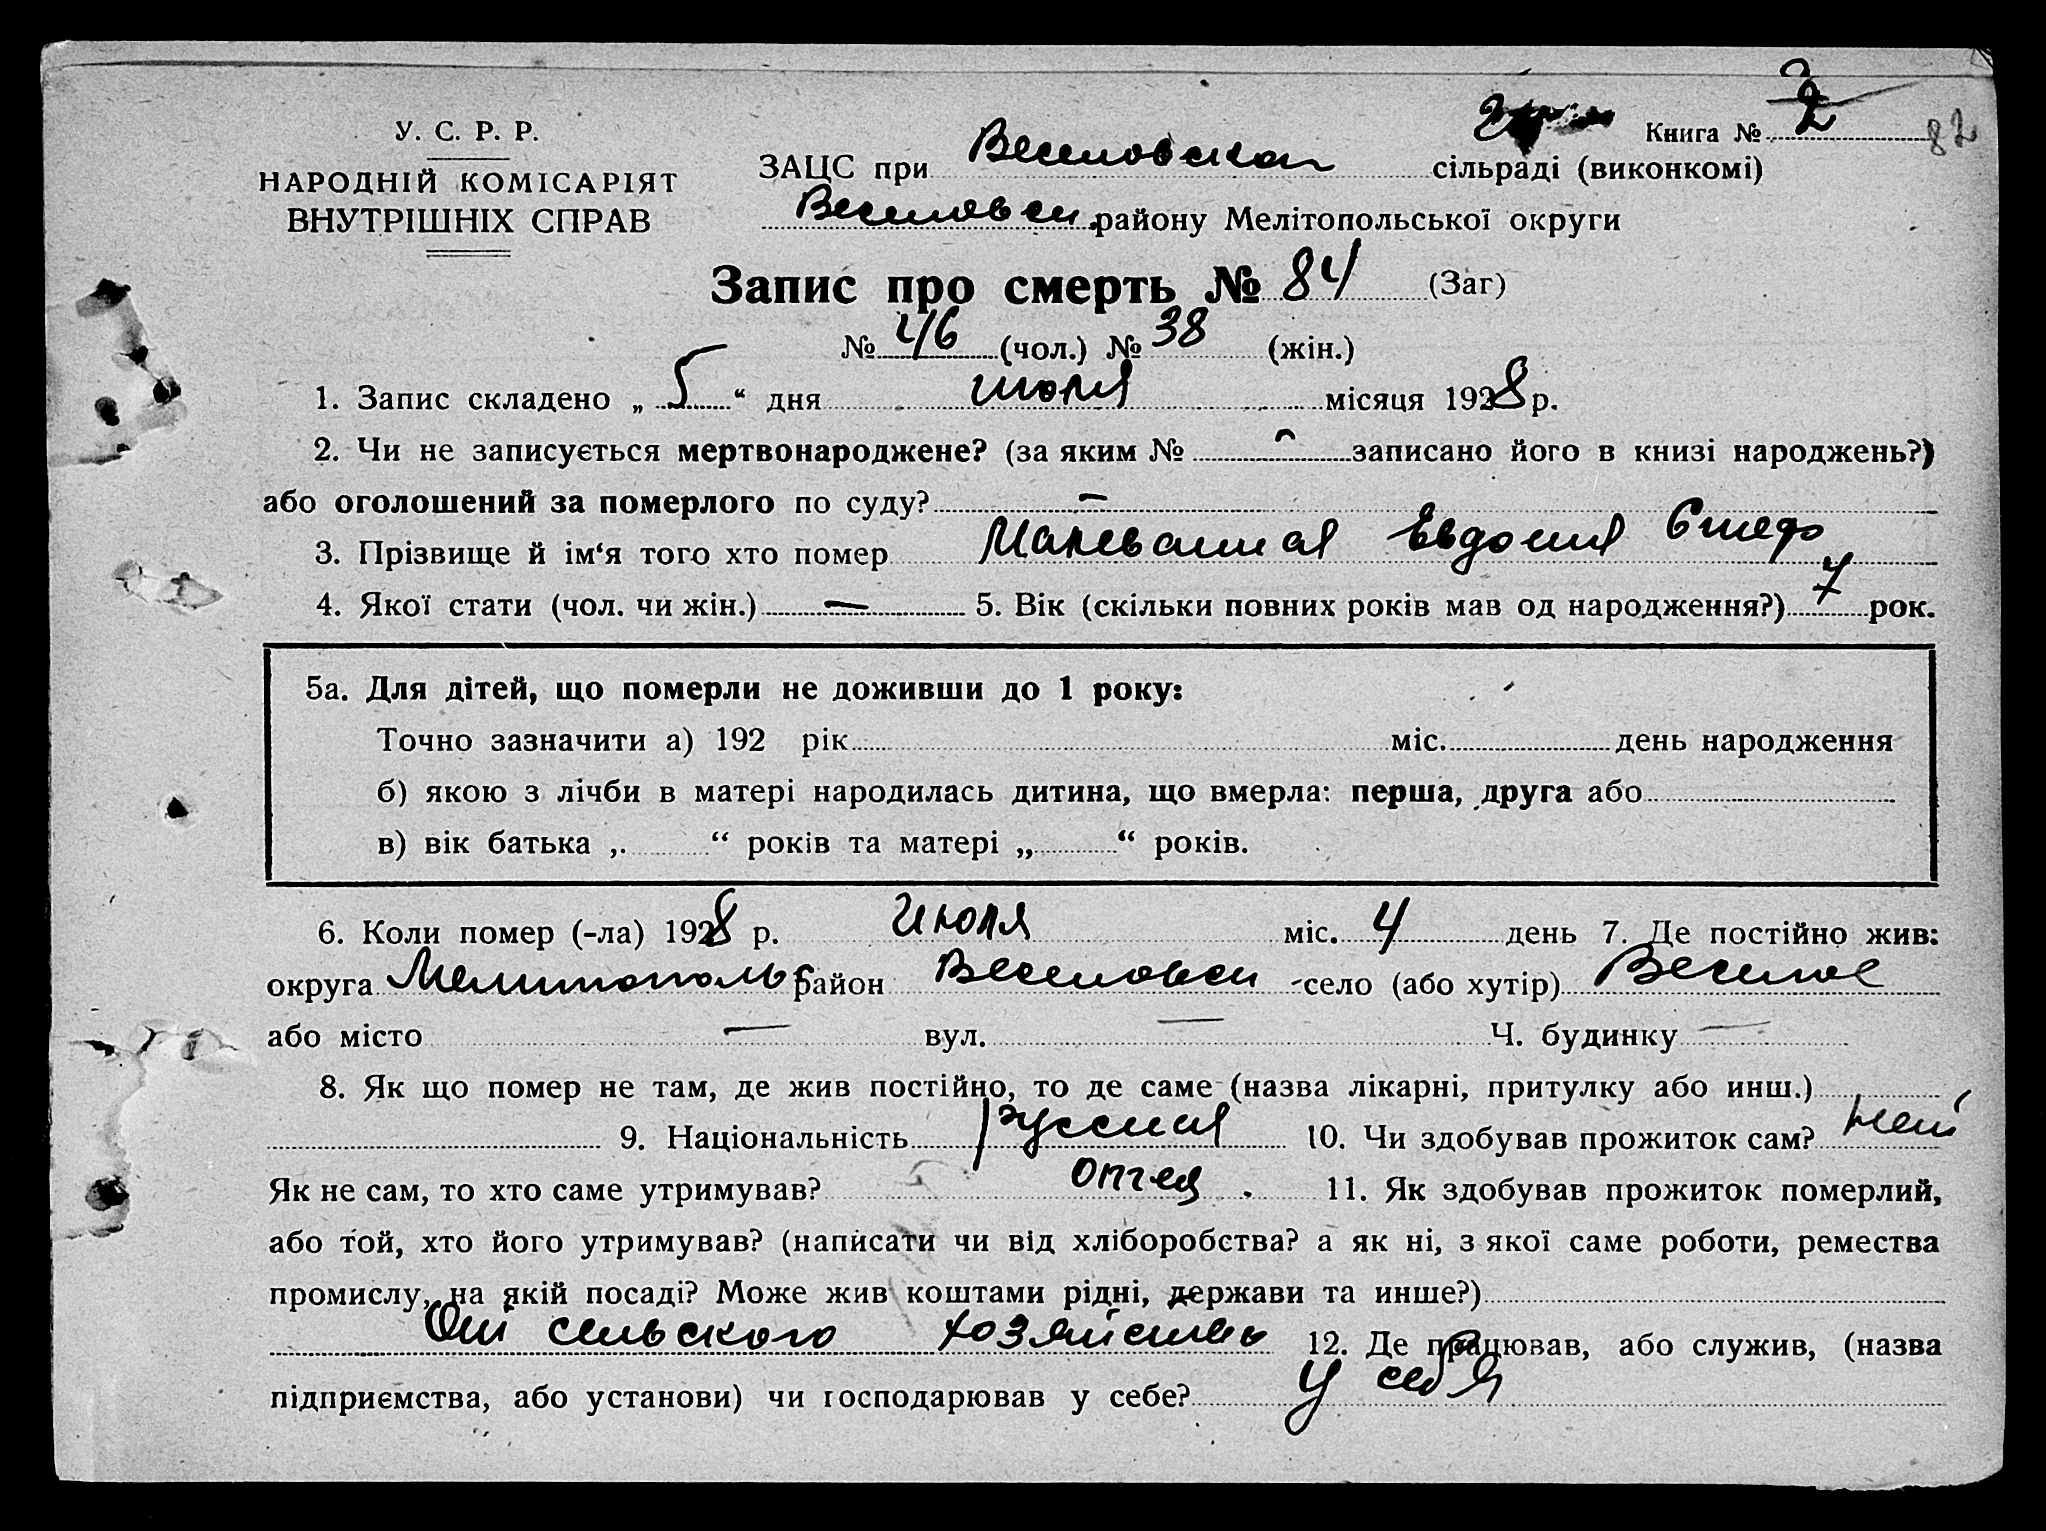 У. С. Р. Р.
НАРОДНІЙ КОМІСАРІЯТ
ВНУТРІШНІХ СПРАВ
Книга № 2
82
ЗАЦС при Веселовской сільраді (виконкомі)
Веселовск. району Мелітопольської округи
Запис про смерть № 84 (Заг)
№ 46 (чол.) № 38 (жін.)
1. Запис складено „ 5 “ дня июля місяця 1928 р.
2. Чи не записується мертвонароджене? (за яким № записано його в книзі народжень?)
або оголошений за померлого по суду? —
3. Прізвище й ім‘я того хто помер Малеванная Евдокия Стефа
4. Якої стати (чол. чи жін.) — 5. Вік (скільки повних років мав од народження?) 7 рок.
5а. Для дітей, що померли не доживши до 1 року:
Точно зазначити а) 192 рік міс. день народження
б) якою з лічби в матері народилась дитина, що вмерла: перша, друга або
в) вік батька „ “ років та матері „ “ років.
6. Коли помер (-ла) 1928 р. Июля міс. 4 день 7. Де постійно жив:
округа Мелитополь район Веселовск село (або хутір) Веселое
або місто — вул. — Ч. будинку —
8. Як що помер не там, де жив постійно, то де саме (назва лікарні, притулку або инш.)
9. Національність русская 10. Чи здобував прожиток сам? нет
Як не сам, то хто саме утримував? отец 11. Як здобував прожиток померлий,
або той, хто його утримував? (написати чи від хліборобства? а як ні, з якої саме роботи, ремества
промислу, на якій посаді? Може жив коштами рідні, держави та инше?)
От сельского хозяйства 12. Де працював, або служив, (назва
підприємства, або установи) чи господарював у себе? У себя